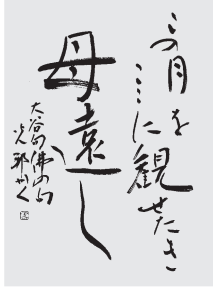 この月を
ここに観せたき
母遠し
大谷句佛の句